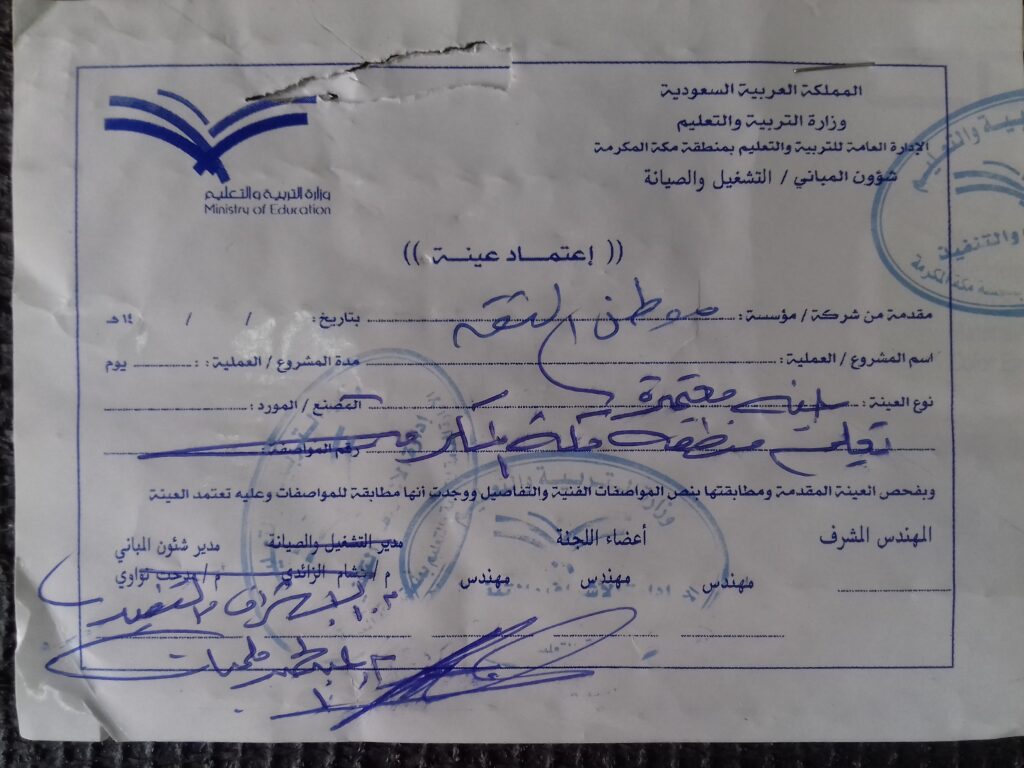 المملكة العربية السعودية
وزارة التربية والتعليم
الإدارة العامة للتربية والتعليم بمنطقة مكة المكرمة
شؤون المباني / التشغيل والصيانة
وزارة التربية والتعليم
Ministry of Education
(( إعتماد عينة ))
مقدمة من شركة / مؤسسة : موطن الثقة بتاريخ : / / ١٤هـ
اسم المشروع / العملية : مدة المشروع / العملية : يوم
نوع العينة : عينه معتمدة المصنع / المورد :
تعليم منطقة مكة المكرمة رقم المواصفة :
وبفحص العينة المقدمة ومطابقتها بنص المواصفات الفنية والتفاصيل ووجدت أنها مطابقة للمواصفات وعليه تعتمد العينة
المهندس المشرف أعضاء اللجنة مدير التشغيل والصيانة مدير شئون المباني
مهندس مهندس مهندس م / هشام الزائدي م / مدحت نواوي
الإشراف والتنفيذ
والتنفيذ
مكة المكرمة
وزارة التربية والتعليم